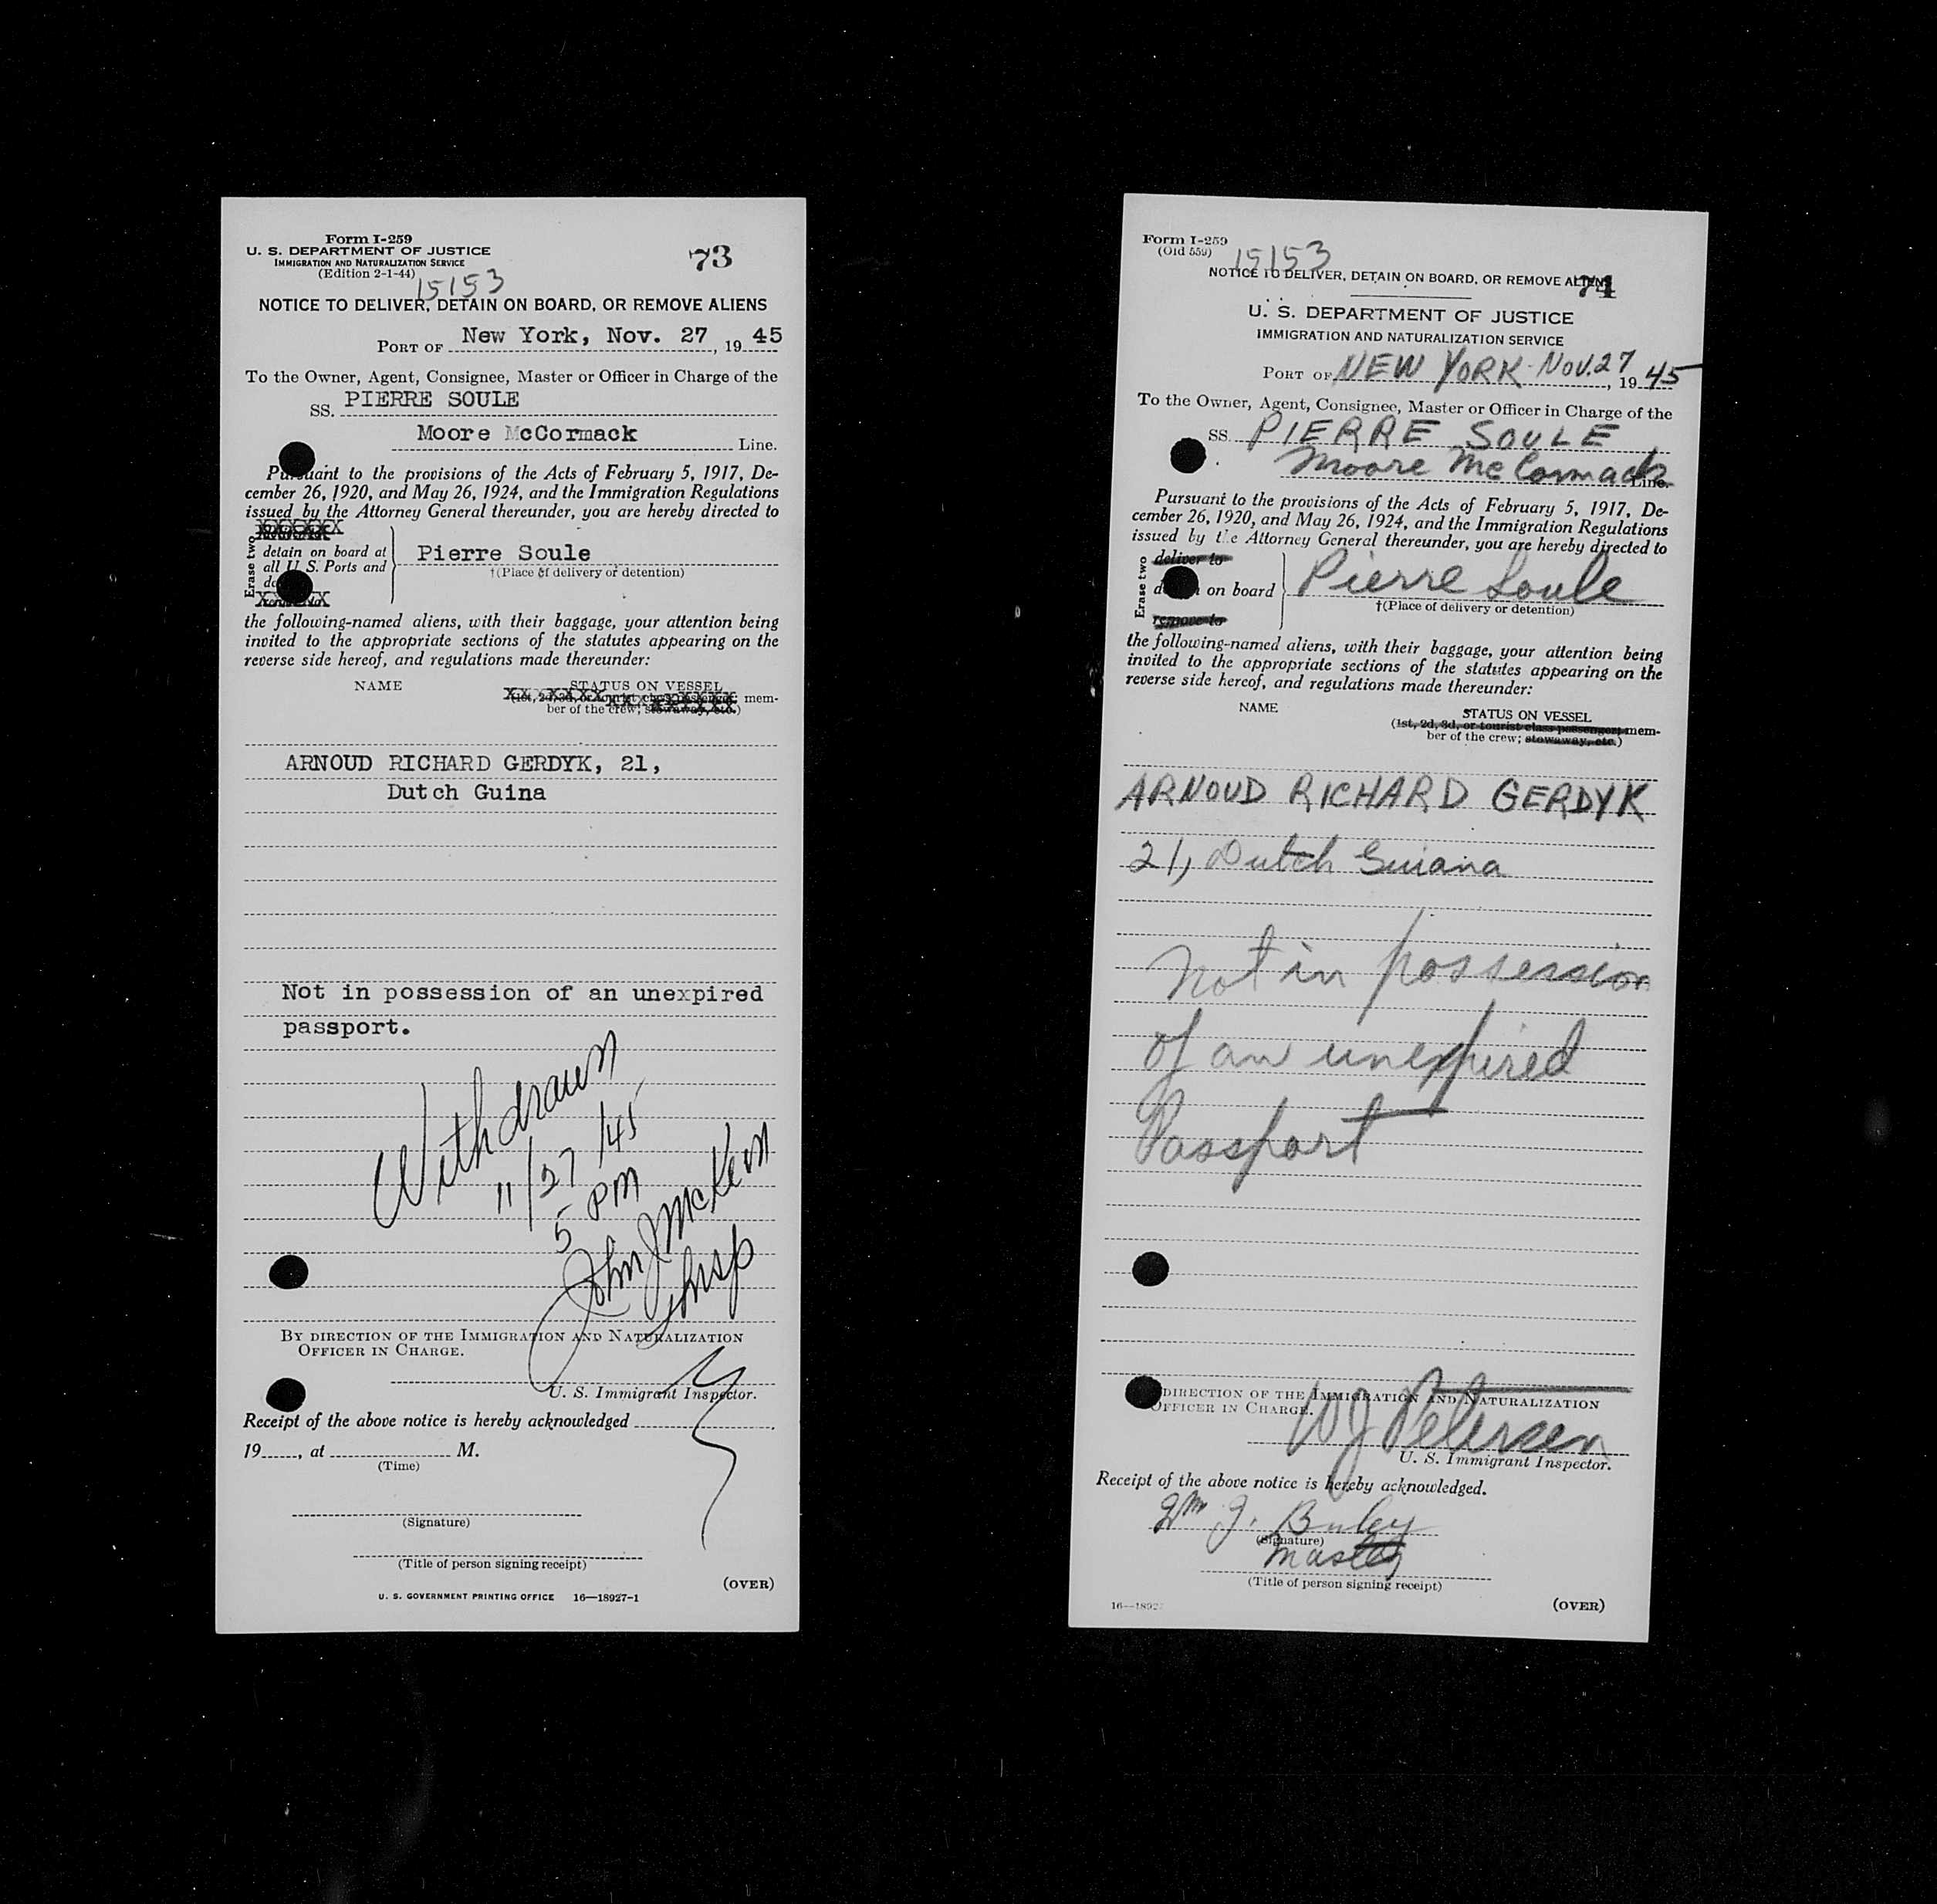 Form I-259
U. S. DEPARTMENT OF JUSTICE
IMMIGRATION AND NATURALIZATION SERVICE
(Edition 2-1-44)
73
15153
NOTICE TO DELIVER, DETAIN ON BOARD, OR REMOVE ALIENS
PORT OF New York, Nov. 27, 19 45
To the Owner, Agent, Consignee, Master or Officer in Charge of the
SS. PIERRE SOULE
Moore McCormack Line.
Pursuant to the provisions of the Acts of February 5, 1917, De-
cember 26, 1920, and May 26, 1924, and the Immigration Regulations
issued by the Attorney General thereunder, you are hereby directed to
Erase two
detain on board at
all U S. Ports and
Pierre Soule
†(Place of delivery or detention)
the following-named aliens, with their baggage, your attention being
invited to the appropriate sections of the statutes appearing on the
reverse side hereof, and regulations made thereunder:
NAME
STATUS ON VESSEL
(1st, 2d, 3d, or tourist class passenger; mem-
ber of the crew; stowaway, etc.)
ARNOUD RICHARD GERDYK, 21,
Dutch Guina
Not in possession of an unexpired
passport.
Withdrawn
11/27/45
5 PM
John J McKeon
Insp
BY DIRECTION OF THE IMMIGRATION AND NATURALIZATION
OFFICER IN CHARGE.
U. S. Immigrant Inspector.
Receipt of the above notice is hereby acknowledged
19, at M.
(Time)
(Signature)
(Title of person signing receipt)
(OVER)
U. S. GOVERNMENT PRINTING OFFICE 16—18927-1
Form I-259
(Old 559)
15153
NOTICE TO DELIVER, DETAIN ON BOARD, OR REMOVE ALIENS
74
U. S. DEPARTMENT OF JUSTICE
IMMIGRATION AND NATURALIZATION SERVICE
PORT OF NEW YORK NOV. 27, 19 45
To the Owner, Agent, Consignee, Master or Officer in Charge of the
SS. PIERRE SOULE
Moore McCormack Line.
Pursuant to the provisions of the Acts of February 5, 1917, De-
cember 26, 1920, and May 26, 1924, and the Immigration Regulations
issued by the Attorney General thereunder, you are hereby directed to
Erase two
deliver to
on board
remove to
Pierre Soule
†(Place of delivery or detention)
the following-named aliens, with their baggage, your attention being
invited to the appropriate sections of the statutes appearing on the
reverse side hereof, and regulations made thereunder:
NAME
STATUS ON VESSEL
(1st, 2d, 3d, or tourist class passenger; mem-
ber of the crew; stowaway, etc.)
ARNOUD RICHARD GERDYK
21, Dutch Guiana
Not in possession
of an unexpired
Passport
DIRECTION OF THE IMMIGRATION AND NATURALIZATION
OFFICER IN CHARGE.
WJ Petersen
U. S. Immigrant Inspector.
Receipt of the above notice is hereby acknowledged.
Wm J.
(Signature)
Master
(Title of person signing receipt)
16—18927
(OVER)